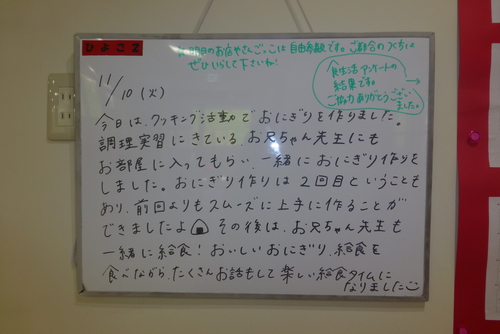 ひよこ2
明日のお店やさんごっこは自由参観です。ご都合のつく方は
ぜひいらして下さいね!
食生活アンケートの
結果です。→
ご協力ありがとうござい
ました。
11/10(火)
今日は、クッキング活動でおにぎりを作りました。
調理実習にきている、お兄ちゃん先生にも
お部屋に入ってもらい、一緒におにぎり作りを
しました。おにぎり作りは2回目ということも
あり、前回よりもスムーズに上手に作ることが
できましたよ🍙 その後は、お兄ちゃん先生も
一緒に給食!おいしいおにぎり、給食を
食べながら、たくさんお話もして楽しい給食タイムに
なりました